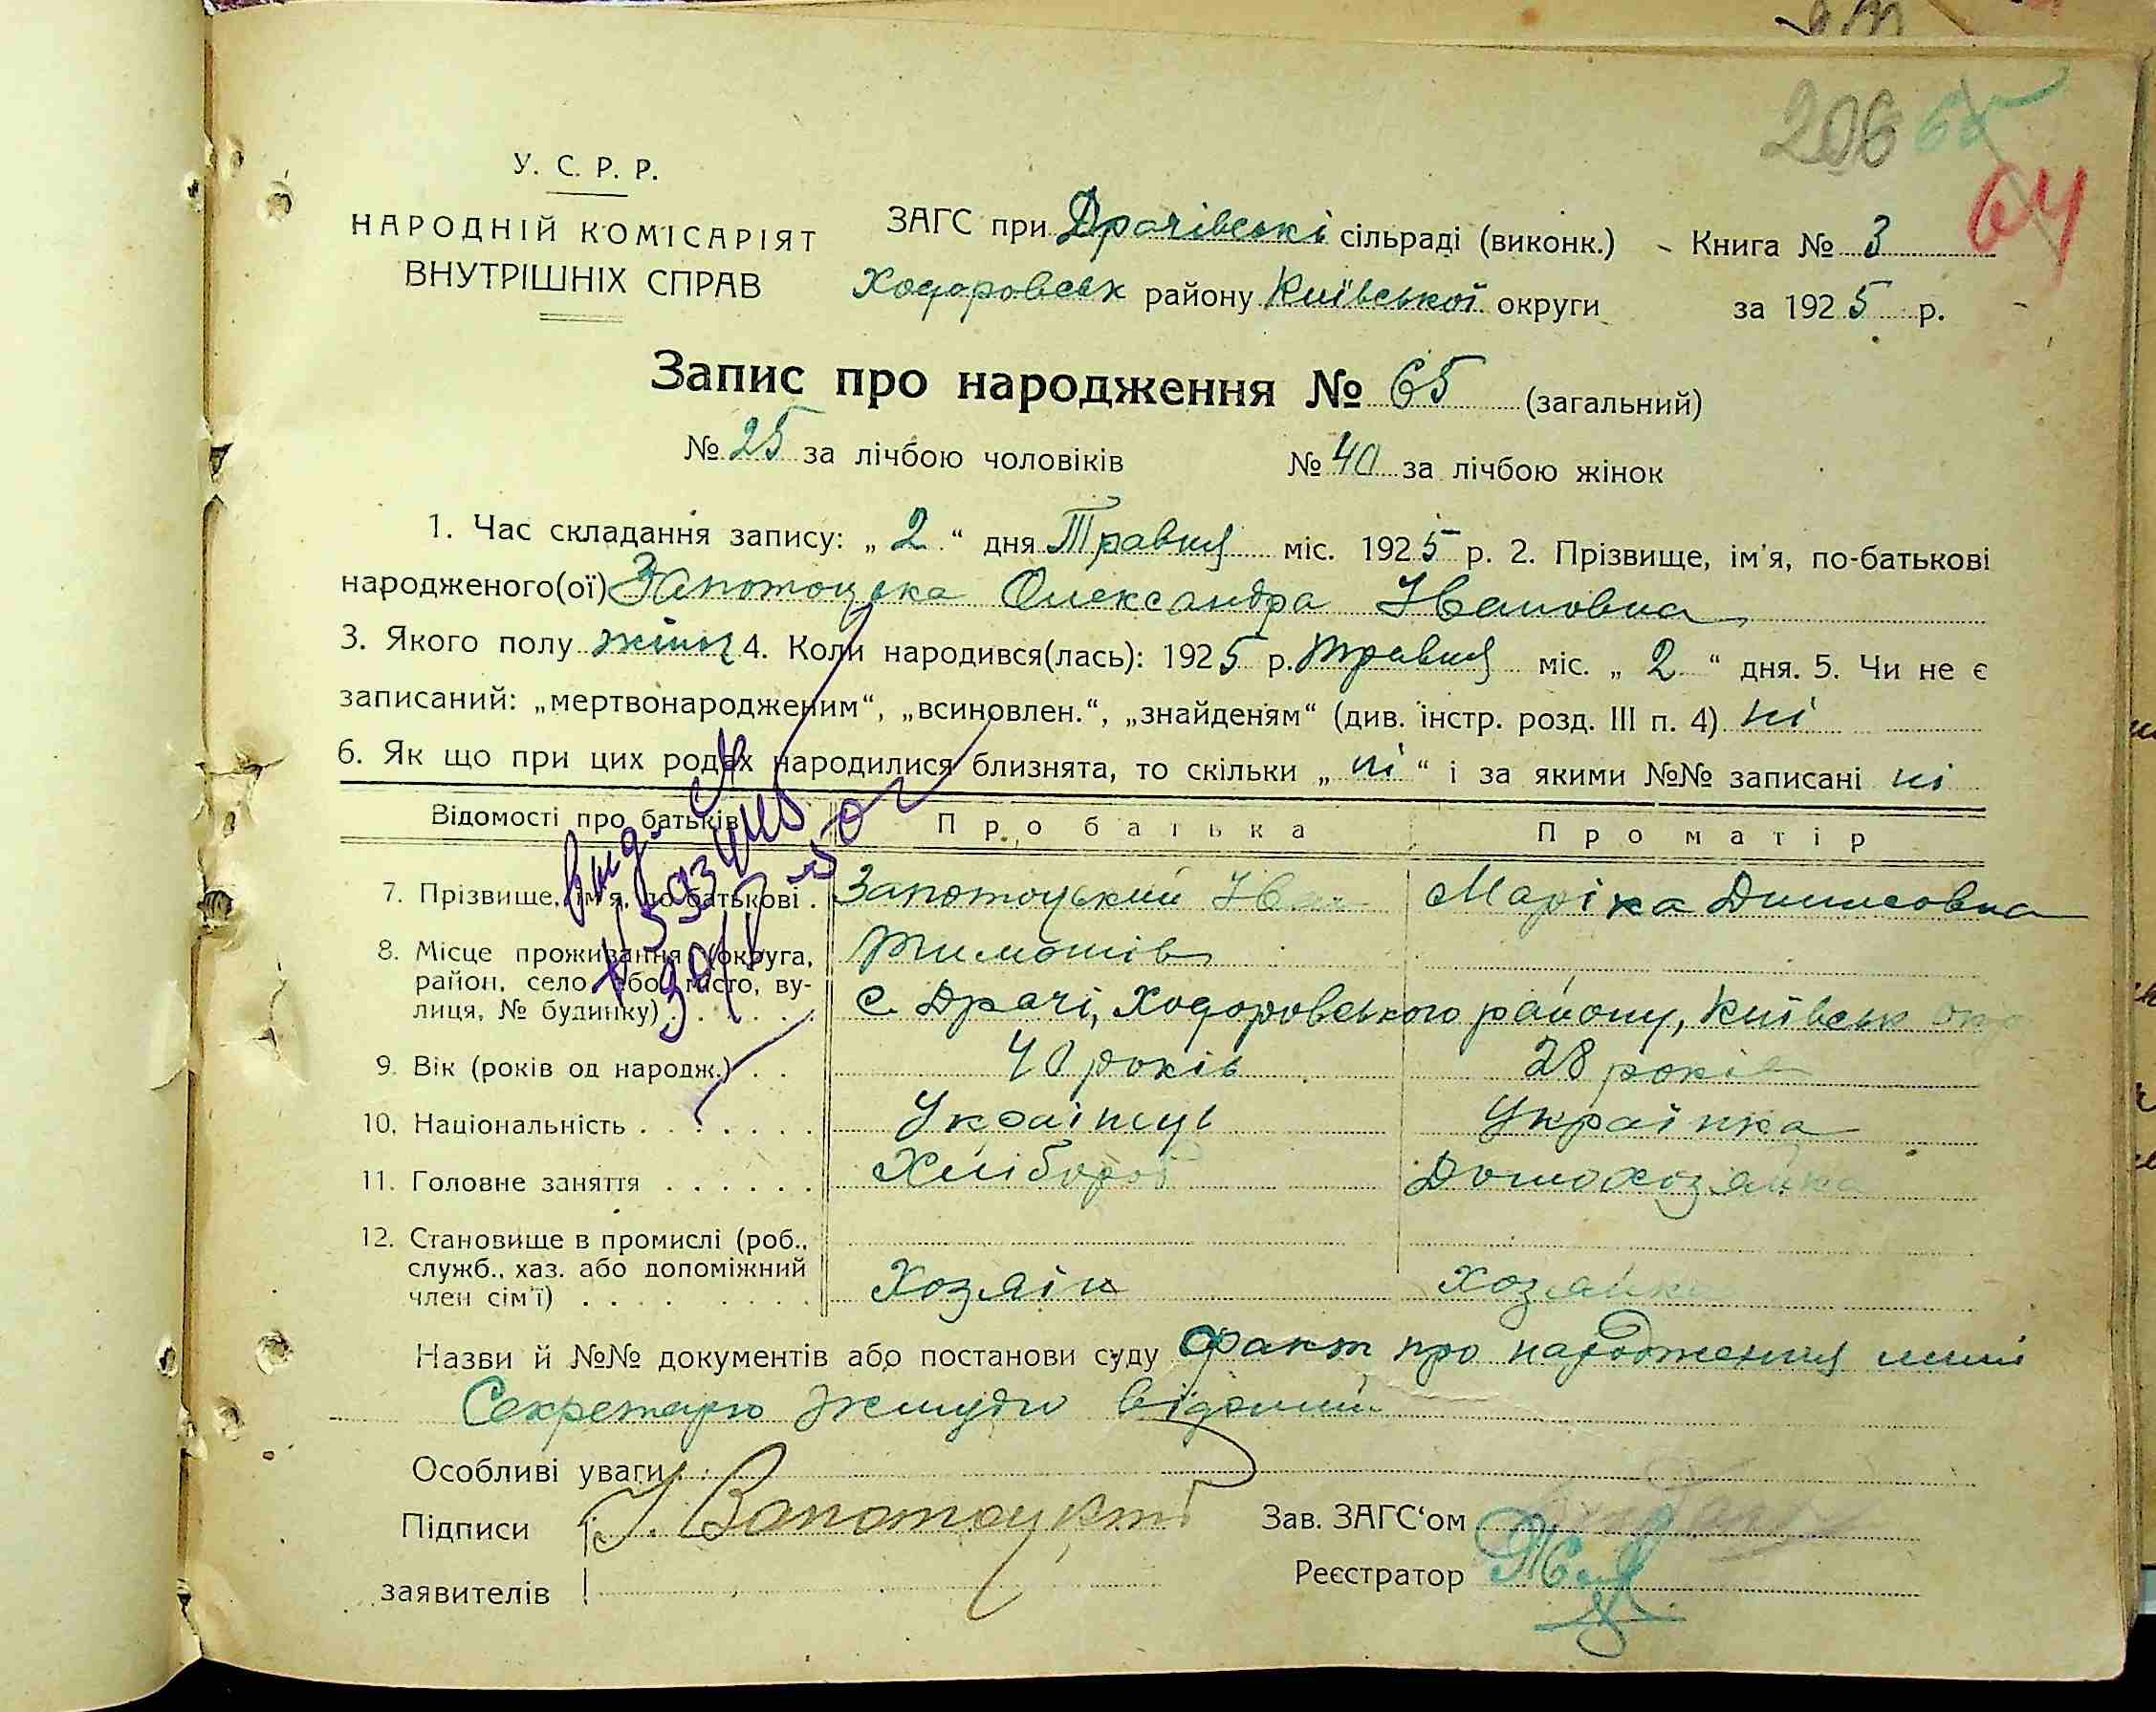 206 65
64
У. С. Р. Р.
НАРОДНІЙ КОМІСАРІЯТ
ВНУТРІШНІХ СПРАВ
ЗАГС при Драчівські сільраді (виконк.) Книга № 3
Ходоровськ району Київської округи за 1925 р.
Запис про народження № 65 (загальний)
№ 25 за лічбою чоловіків № 40 за лічбою жінок
1. Час складання запису: „ 2 “ дня Травня міс. 1925 р. 2. Прізвище, ім'я, по-батькові
народженого(ої) Запотоцька Олександра Івановна
3. Якого полу жіноч 4. Коли народився(лась): 1925 р. травня міс. „ 2 “ дня. 5. Чи не є
записаний: „мертвонародженим“, „всиновлен.“, „знайденям“ (див. інстр. розд. III п. 4) ні
6. Як що при цих родах народилися близнята, то скільки „ ні “ і за якими №№ записані ні
Відомості про батьків Про батька Про матір
7. Прізвище, ім'я, по батькові . Запотоцький Іван Маріка Динисовна
Тимошів
8. Місце проживання (округа,
район, село або місто, ву-
лиця, № будинку) . . . . . . с. Драчі, Ходоровського району, Київськ окр
9. Вік (років од народж.) . . 40 років 28 років
10. Національність . . . . . . Українець Українка
11. Головне заняття . . . . . . Хлібороб Домохозяйка
12. Становище в промислі (роб.,
служб., хаз. або допоміжний
член сім'ї) . . . . . . . . Хозяін Хозяйка
Назви й №№ документів або постанови суду факт про народження мині
Секретарю відомий
Особливі уваги
Підписи І. Запотоцкий Зав. ЗАГС‘ом
заявителів Реєстратор